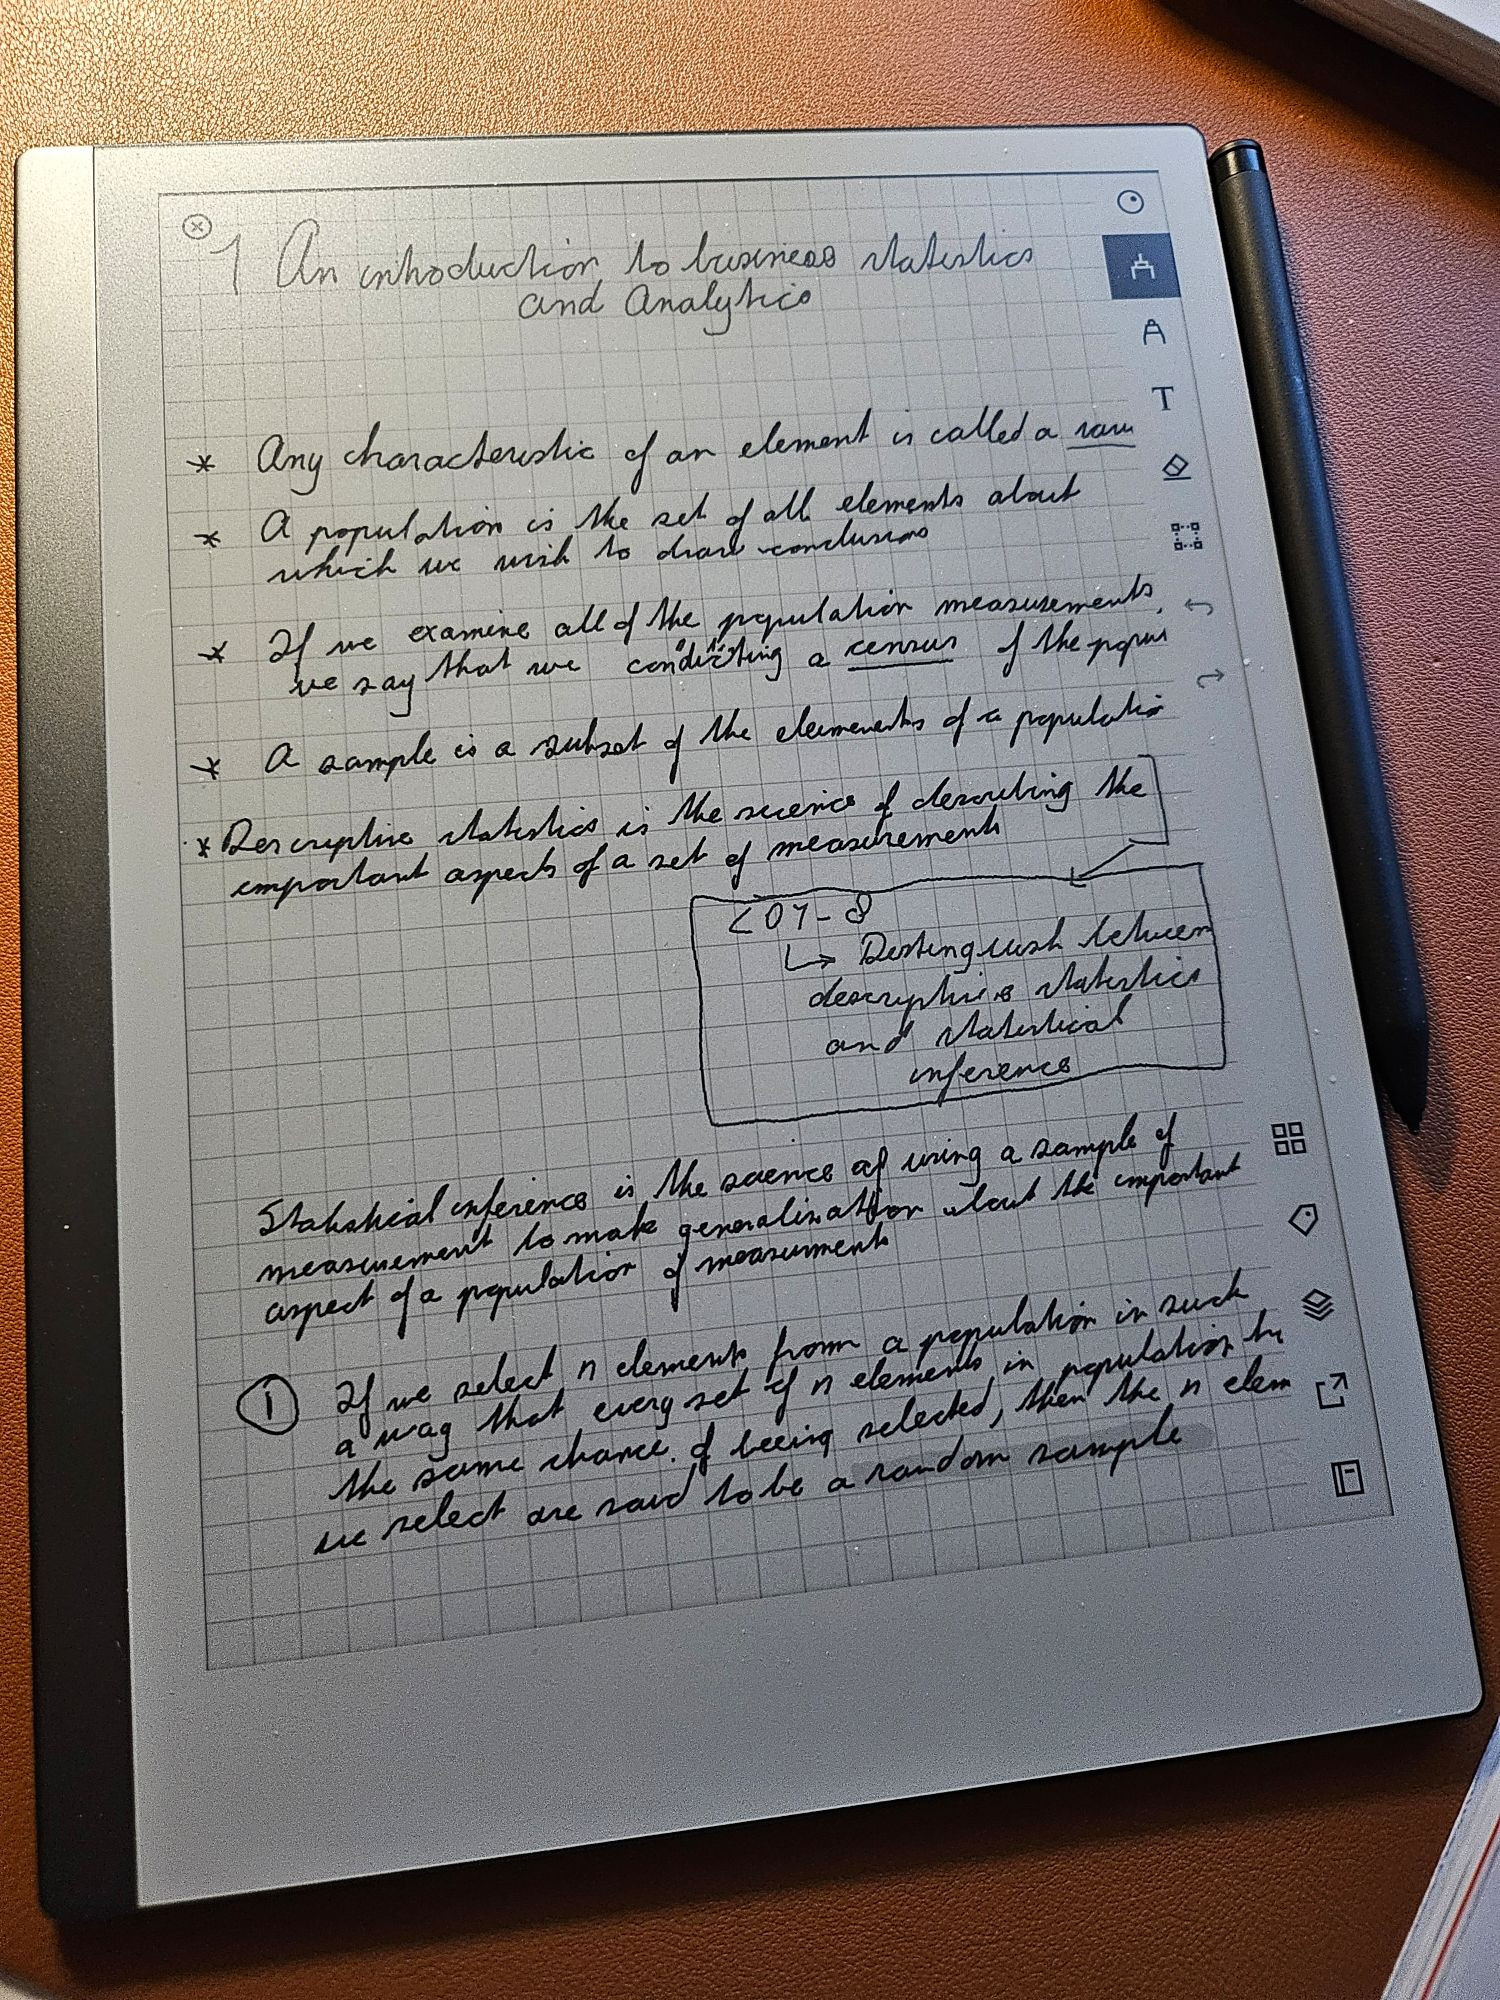 1 An introduction to business statistics
and Analytics
* Any characteristic of an element is called a
* A population is the set of all elements about
which we wish to draw conclusions
* If we examine all of the population measurements,
we say that we conducting a census of the popu
* A sample is a subset of the elements of a populatio
* Descriptive statistics is the science of describing the
important aspects of a set of measurements
LO1-8
↳ Distinguish between
descriptive statistics
and statistical
inference
Statistical inference is the science of using a sample of
measurement to make generalization about the important
aspect of a population of measurments
① If we select n elements from a population in such
a way that every set of n elements in population
the same chance of beeing selected, then the n elem
we select are said to be a random sample
T